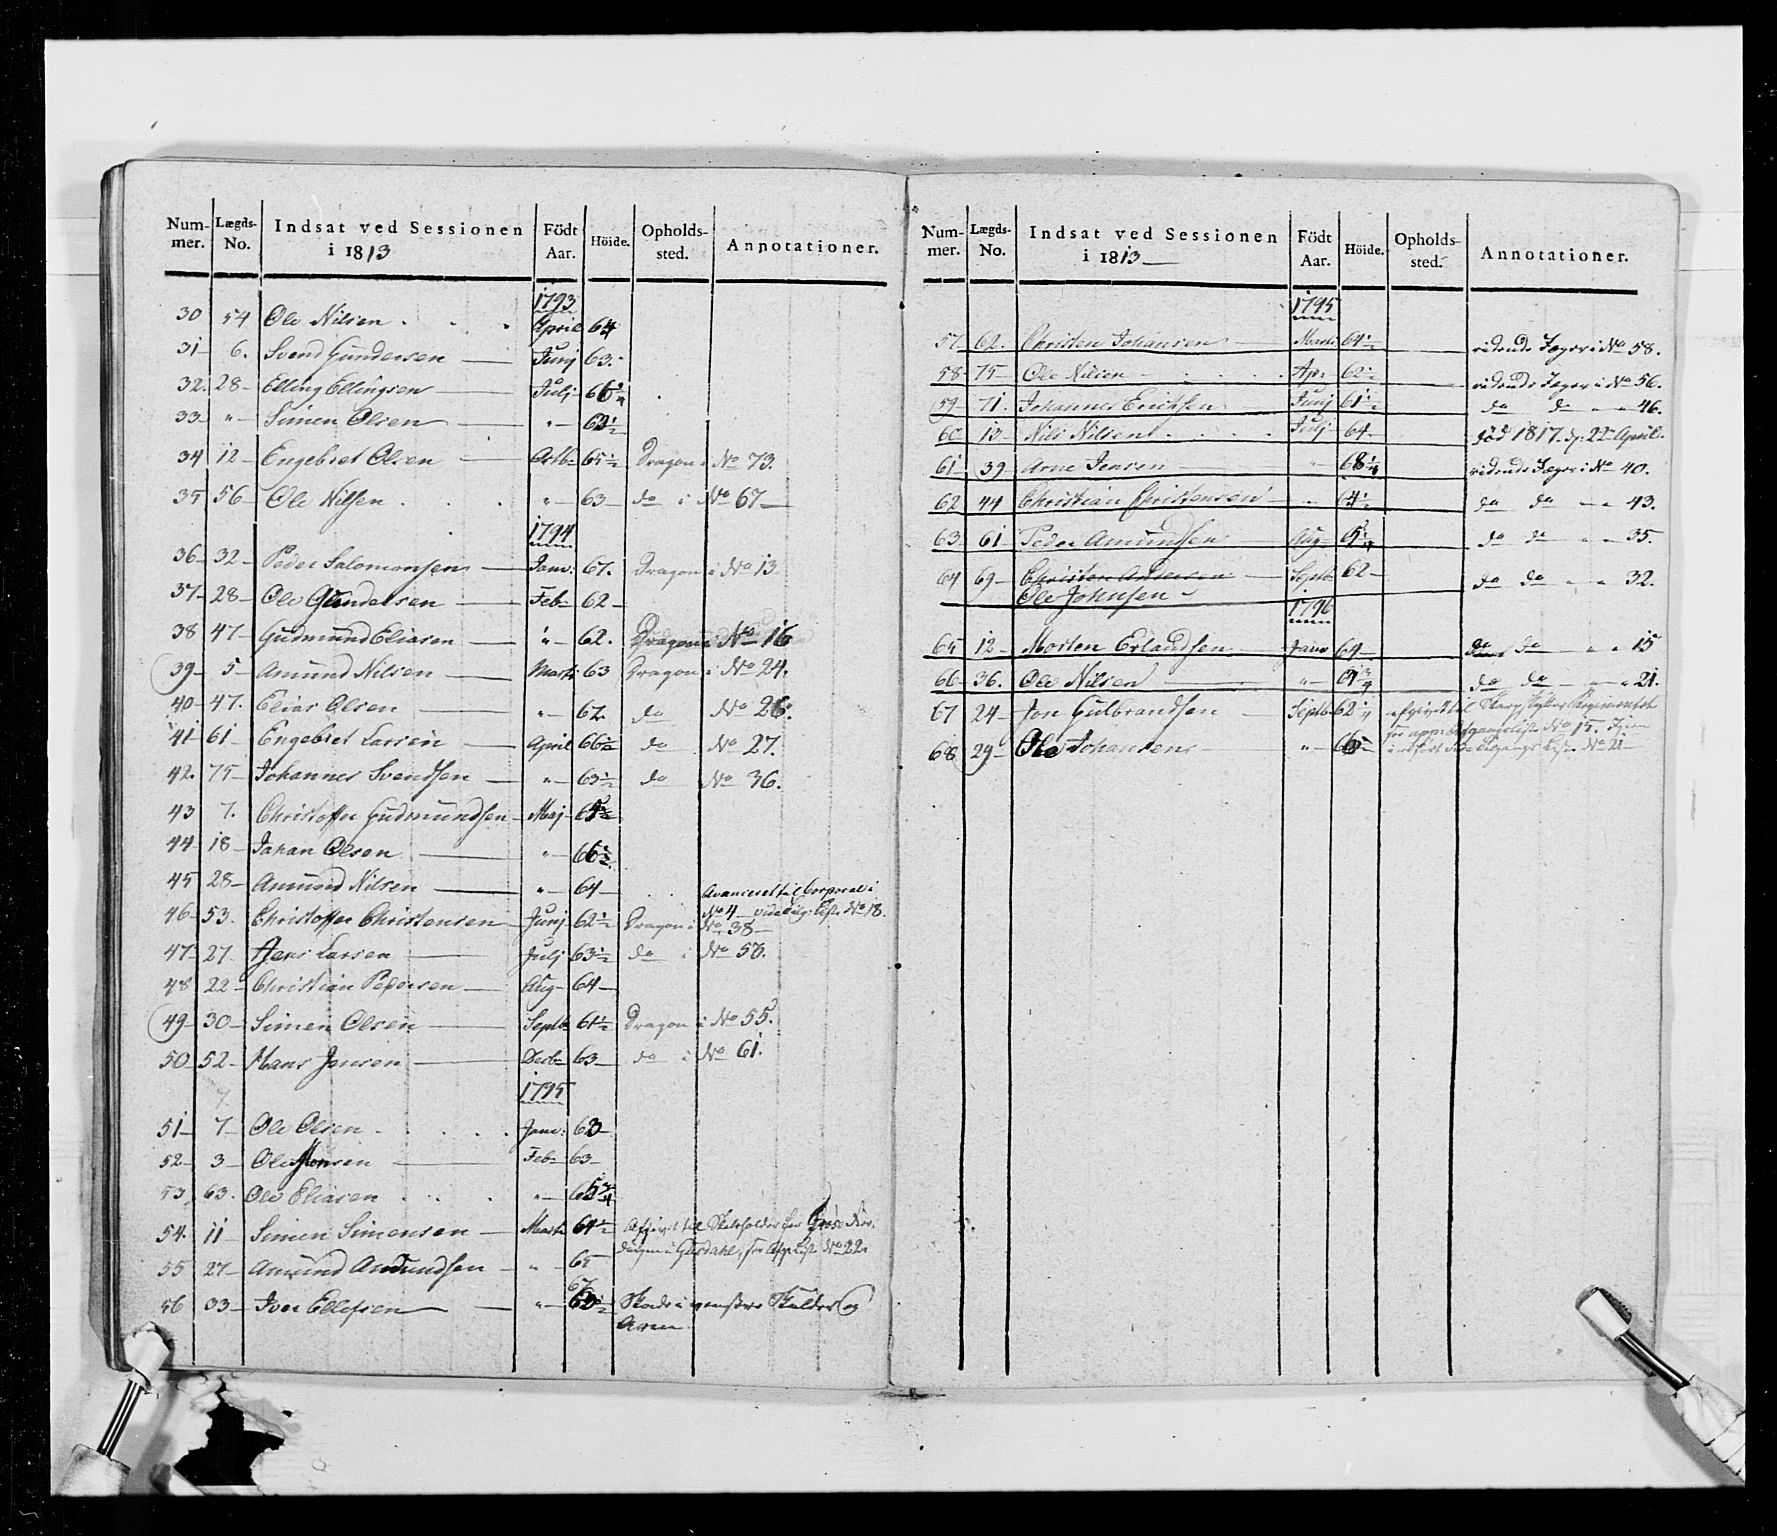 Num- Lægds- Indsat ved Sessionen Födt Höide. Opholds- Annotationer.
mer. No. i 1813 Aar. sted.
1793
30 54 Ole Nilsen April 64
31 6. Svend Gundersen Junj 63.
32. 28 Elling Ellingsen Julj 66 1/4
33 " Simen Olsen " 62 1/2
34 12 Engebret Olsen Octb 65 1/2 Dragon i No 73.
35 56 Ole Nilsen " 63 do i No 67
1794
36 32 Peder Salomonsen Janv: 67. Dragon i No 13
37 28 Ole Gundersen Feb 62
38 47 Gudmund Eliasen " 62. Dragon i No 16
39 5 Amund Nilsen Marti 63 Dragon i No 24.
40 47. Elias Olsen " 62. do No 26.
41 61 Engebret Larsen April 66 1/2 do No 27.
42. 75 Johannes Svendsen " 63 1/2 do No 36.
43 7. Christoffer Gudmundsen Maj
44 18 Johan Olsen " 66 1/2
45 28 Amund Nilsen " 64 Avanceret til Corporal i
No 4 No 18.
46 53. Christoffer Christensen Junj 62 1/2 Dragon i No 38
47 27 Jens Larsen Julj 63 1/2 do i No 50.
48 22 Christian Pedersen Aug 64
49 30 Simen Olsen Septb 61 1/2 Dragon i No 55.
50 52 Hans Jensen Decb 63 do i No 61.
1795
51 7 Ole Olsen Janv: 63
52 3 Ole Monsen Feb 63
53 63. Ole Eliasen " 65 3/4
54. 11 Simen Simensen Marti 64 1/2 Afgivet til
No 22
55 27 Amund Amundsen " 65
56 33 Iver Ellefsen " Skade i venstre Skulder og
Arm
Num- Lægds- Indsat ved Sessionen Födt Höide. Opholds- Annotationer.
mer. No. i 1813 Aar. sted.
1795
57 62. Christen Johansen Marti 64 1/2 ridende Jæger i No 58.
58 75 Ole Nilsen Apr: 62 1/2 ridende Jæger i No 56.
59 71. Johannes Erichsen Junj 61 1/2 do do " " 46.
60 13 Nils Nilsen Julj 64. død 1817 d: 22 April.
61 39 Arne Jensen " 68 1/4 ridende Jæger i No 40.
62 44 Christian Christensen " do do " " 43.
63 61 Peder Amundsen Aug do do " " 35.
64 69 Christen Andersen Septb 62 do do " " 32.
Ole Johnsen
1796
65 12 Morten Erlandsen Janv 64 do do " " 15
66 36. Ole Nilsen " 61 3/4 do do " " 21.
67 24 Jon Gulbrandsen Septb 62 1/4 afgivet til Regimentet
No 15.
68 29 Ole Johansen " No 21